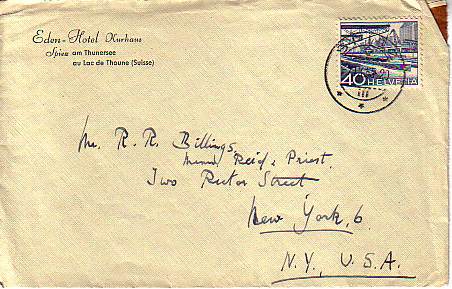 Eden-Hotel Kurhaus
Spiez am Thunersee
au Lac de Thoune (Suisse)
40 HELVETIA
III
Mr. R. R. Billings,
Reid & Priest,
Two Rector Street
New York, 6.
N.Y., U.S.A.